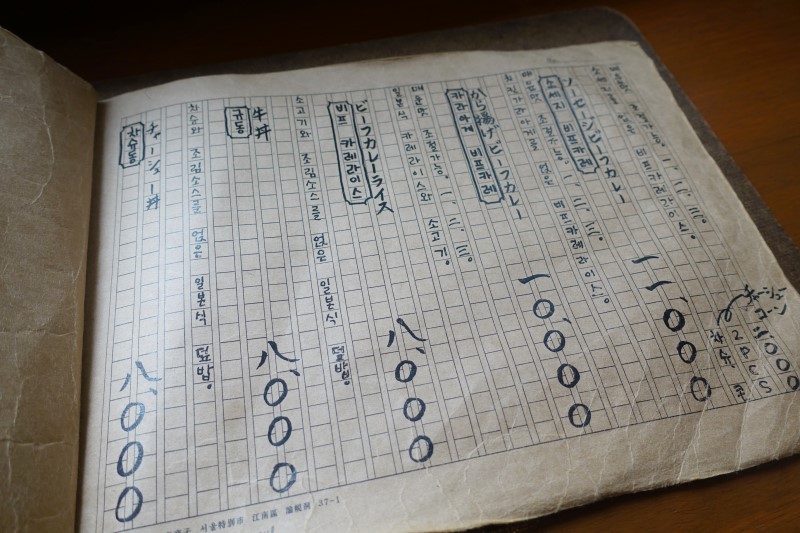 チャーシュー
1000
2PCS
차슈
ソーセージビーフカレー
소세지 비프카레
一一、〇〇〇
소세지를 얹은 비프카레라이스。
매운맛 조절가능. 一、二、三。
から揚げビーフカレー
카라아게 비프카레
一〇、〇〇〇
얹은 비프카레라이스。
매운맛 조절가능. 一、二、三。
ビーフカレーライス
비프 카레라이스
八、〇〇〇
일본식 카레라이스와 소고기。
매운맛 조절가능. 一、二、三。
牛丼
규동
八、〇〇〇
소고기와 조림소스를 얹은 일본식 덮밥。
チャーシュー丼
차슈동
八、〇〇〇
차슈와 조림소스를 얹은 일본식 덮밥。
서울特別市 江南區 論峴洞 37-1